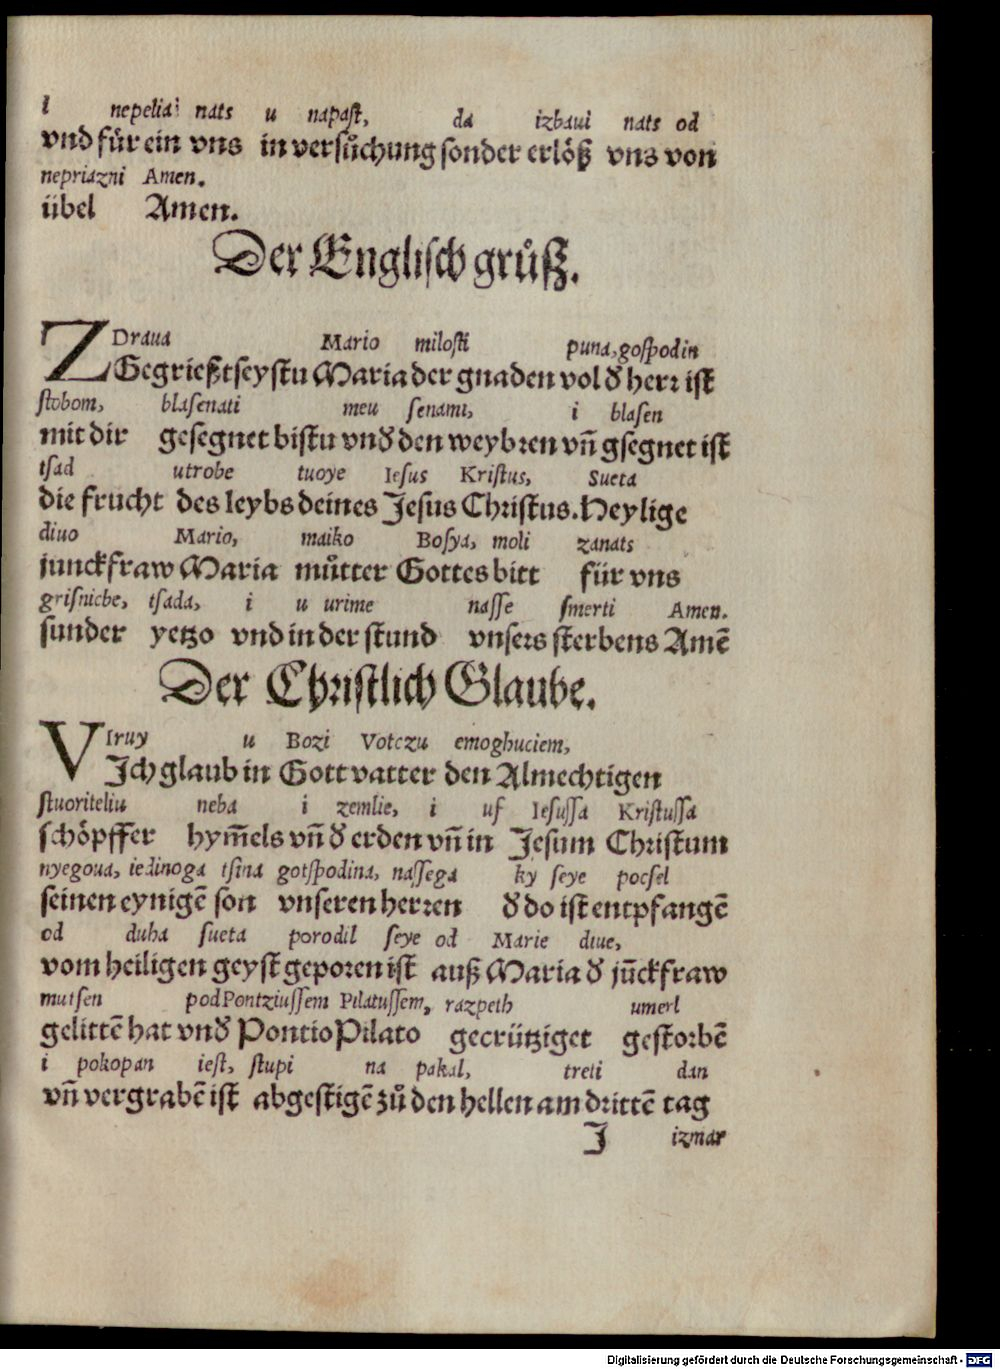 i nepeliai nats u napast, da izbaui nats od
vnd für ein vns in versůchung sonder erlöß vns von
nepriazni Amen.
übel Amen.
Der Englisch grůß.
ZDraua Mario milosti puna, gospodin
Gegrießt seystu Maria der gnaden vol d̕ herr ist
stobom, blaſenati meu ſenami, i blaſen
mit dir gesegnet bistu vnd̕ den weybren vn̄ gsegnet ist
tſad utrobe tuoye Ieſus Kriſtus, Sueta
die frucht des leybs deines Jesus Christus. Heylige
diuo Mario, maiko Boſya, moli zanats
junckfraw Maria můtter Gottes bitt für vns
griſniche, tſada, i u urime naſſe ſmerti Amen.
sunder yetzo vnd in der stund vnsers sterbens Amē
Der Christlich Glaube.
VIruy u Bozi Votczu emoghuciem,
Ich glaub in Gott vatter den Almechtigen
ſtuoriteliu neba i zemlie, i uſ Ieſuſſa Kriſtuſſa
schöpffer hym̄els vn̄ d̕ erden vn̄ in Jesum Christum
nyegoua, iedinoga tſina gotſpodina, naſſega ky ſeye pocſel
seinen eynigē son vnseren herren d̕ do ist entpfangē
od duha ſueta porodil ſeye od Marie diue,
vom heiligen geyst geporen ist auß Maria d̕ jūckfraw
mutſen pod Pontziuſſem Pilatuſſem, razpeth umerl
gelittē hat vnd̕ Pontio Pilato gecrütziget gestorbē
i pokopan iest, stupi na pakal, treti dan
vn̄ vergrabē ist abgestigē zů den hellen am drittē tag
J izmar
Digitalisierung gefördert durch die Deutsche Forschungsgemeinschaft - DFG